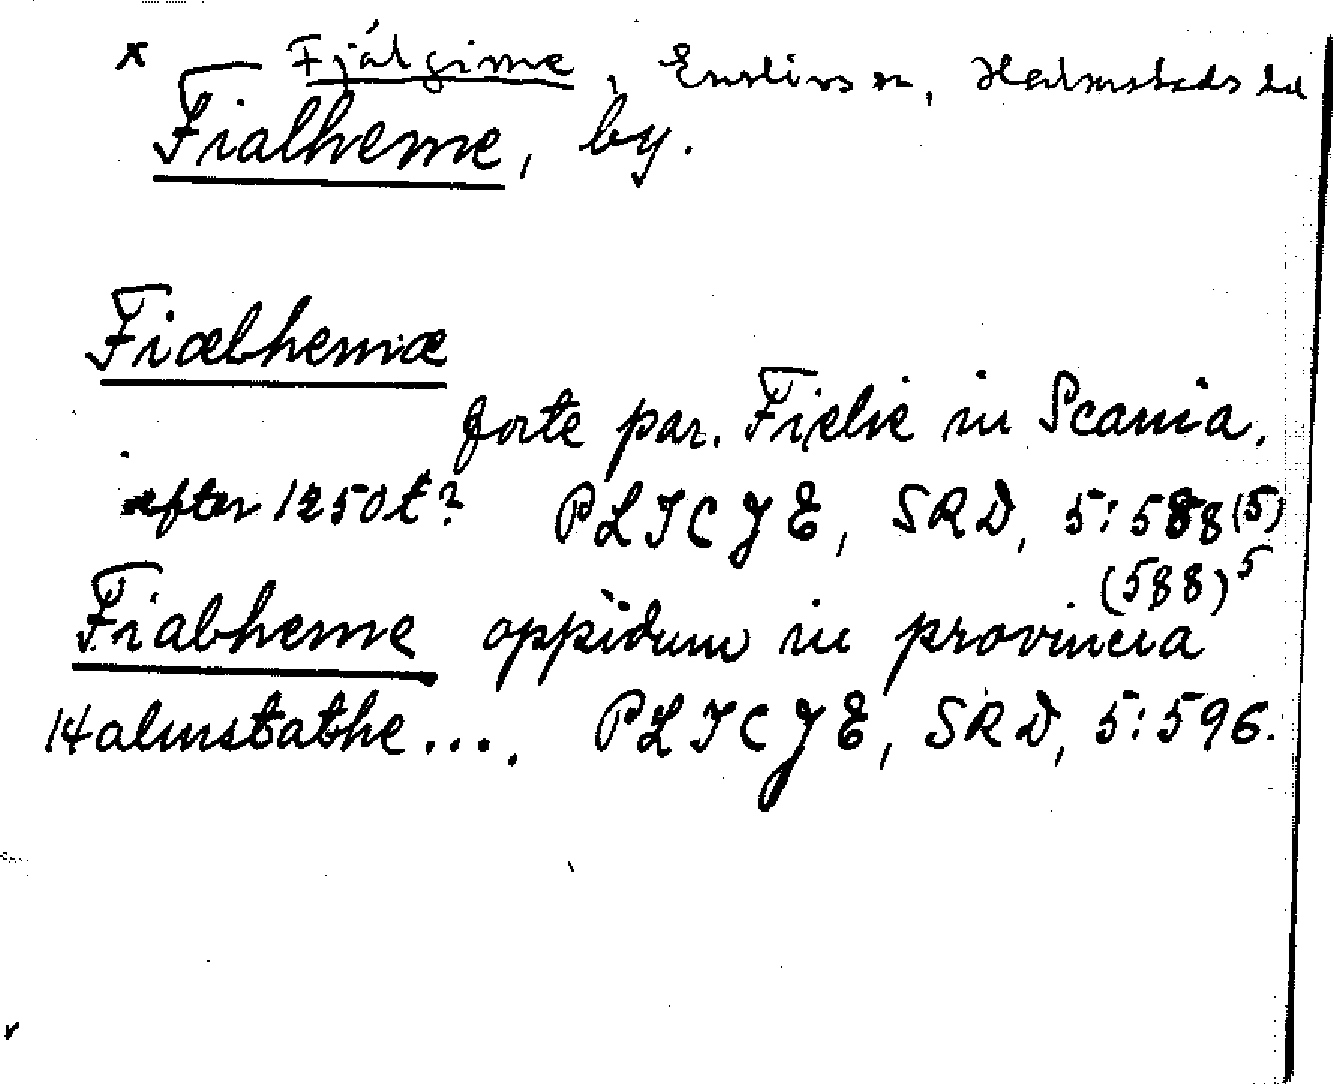 × Fjálgime, Enslövs sn, Halmstads hd
Fialheme, by.
Fiælhemæ
forte par. Fielie in Scania.
efter 1250t? PLTCJE, SRD, 5:588(5)
(588)5
Fialheme oppidum in provincia
Halmstathe.... PLTCJE, SRD, 5:596.